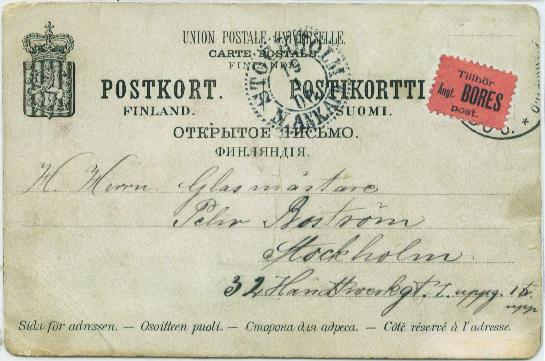 UNION POSTALE UNIVERSELLE.
CARTE POSTALE
FINLANDE
POSTKORT. POSTIKORTTI
FINLAND. SUOMI.
ОТКРЫТОЕ ПИСЬМО.
ФИНЛЯНДІЯ.
STOCKHOLM
19
N. ANK.
Tillhör
Ångf. BORES
post.
H. Herrn Glasmästare
Pehr Boström
Stockholm
32 Handtverkgt. 1. uppg. 1 tr. upp
Sida för adressen. — Osoitteen puoli. — Сторона для адреса. — Côté réservé à l'adresse.